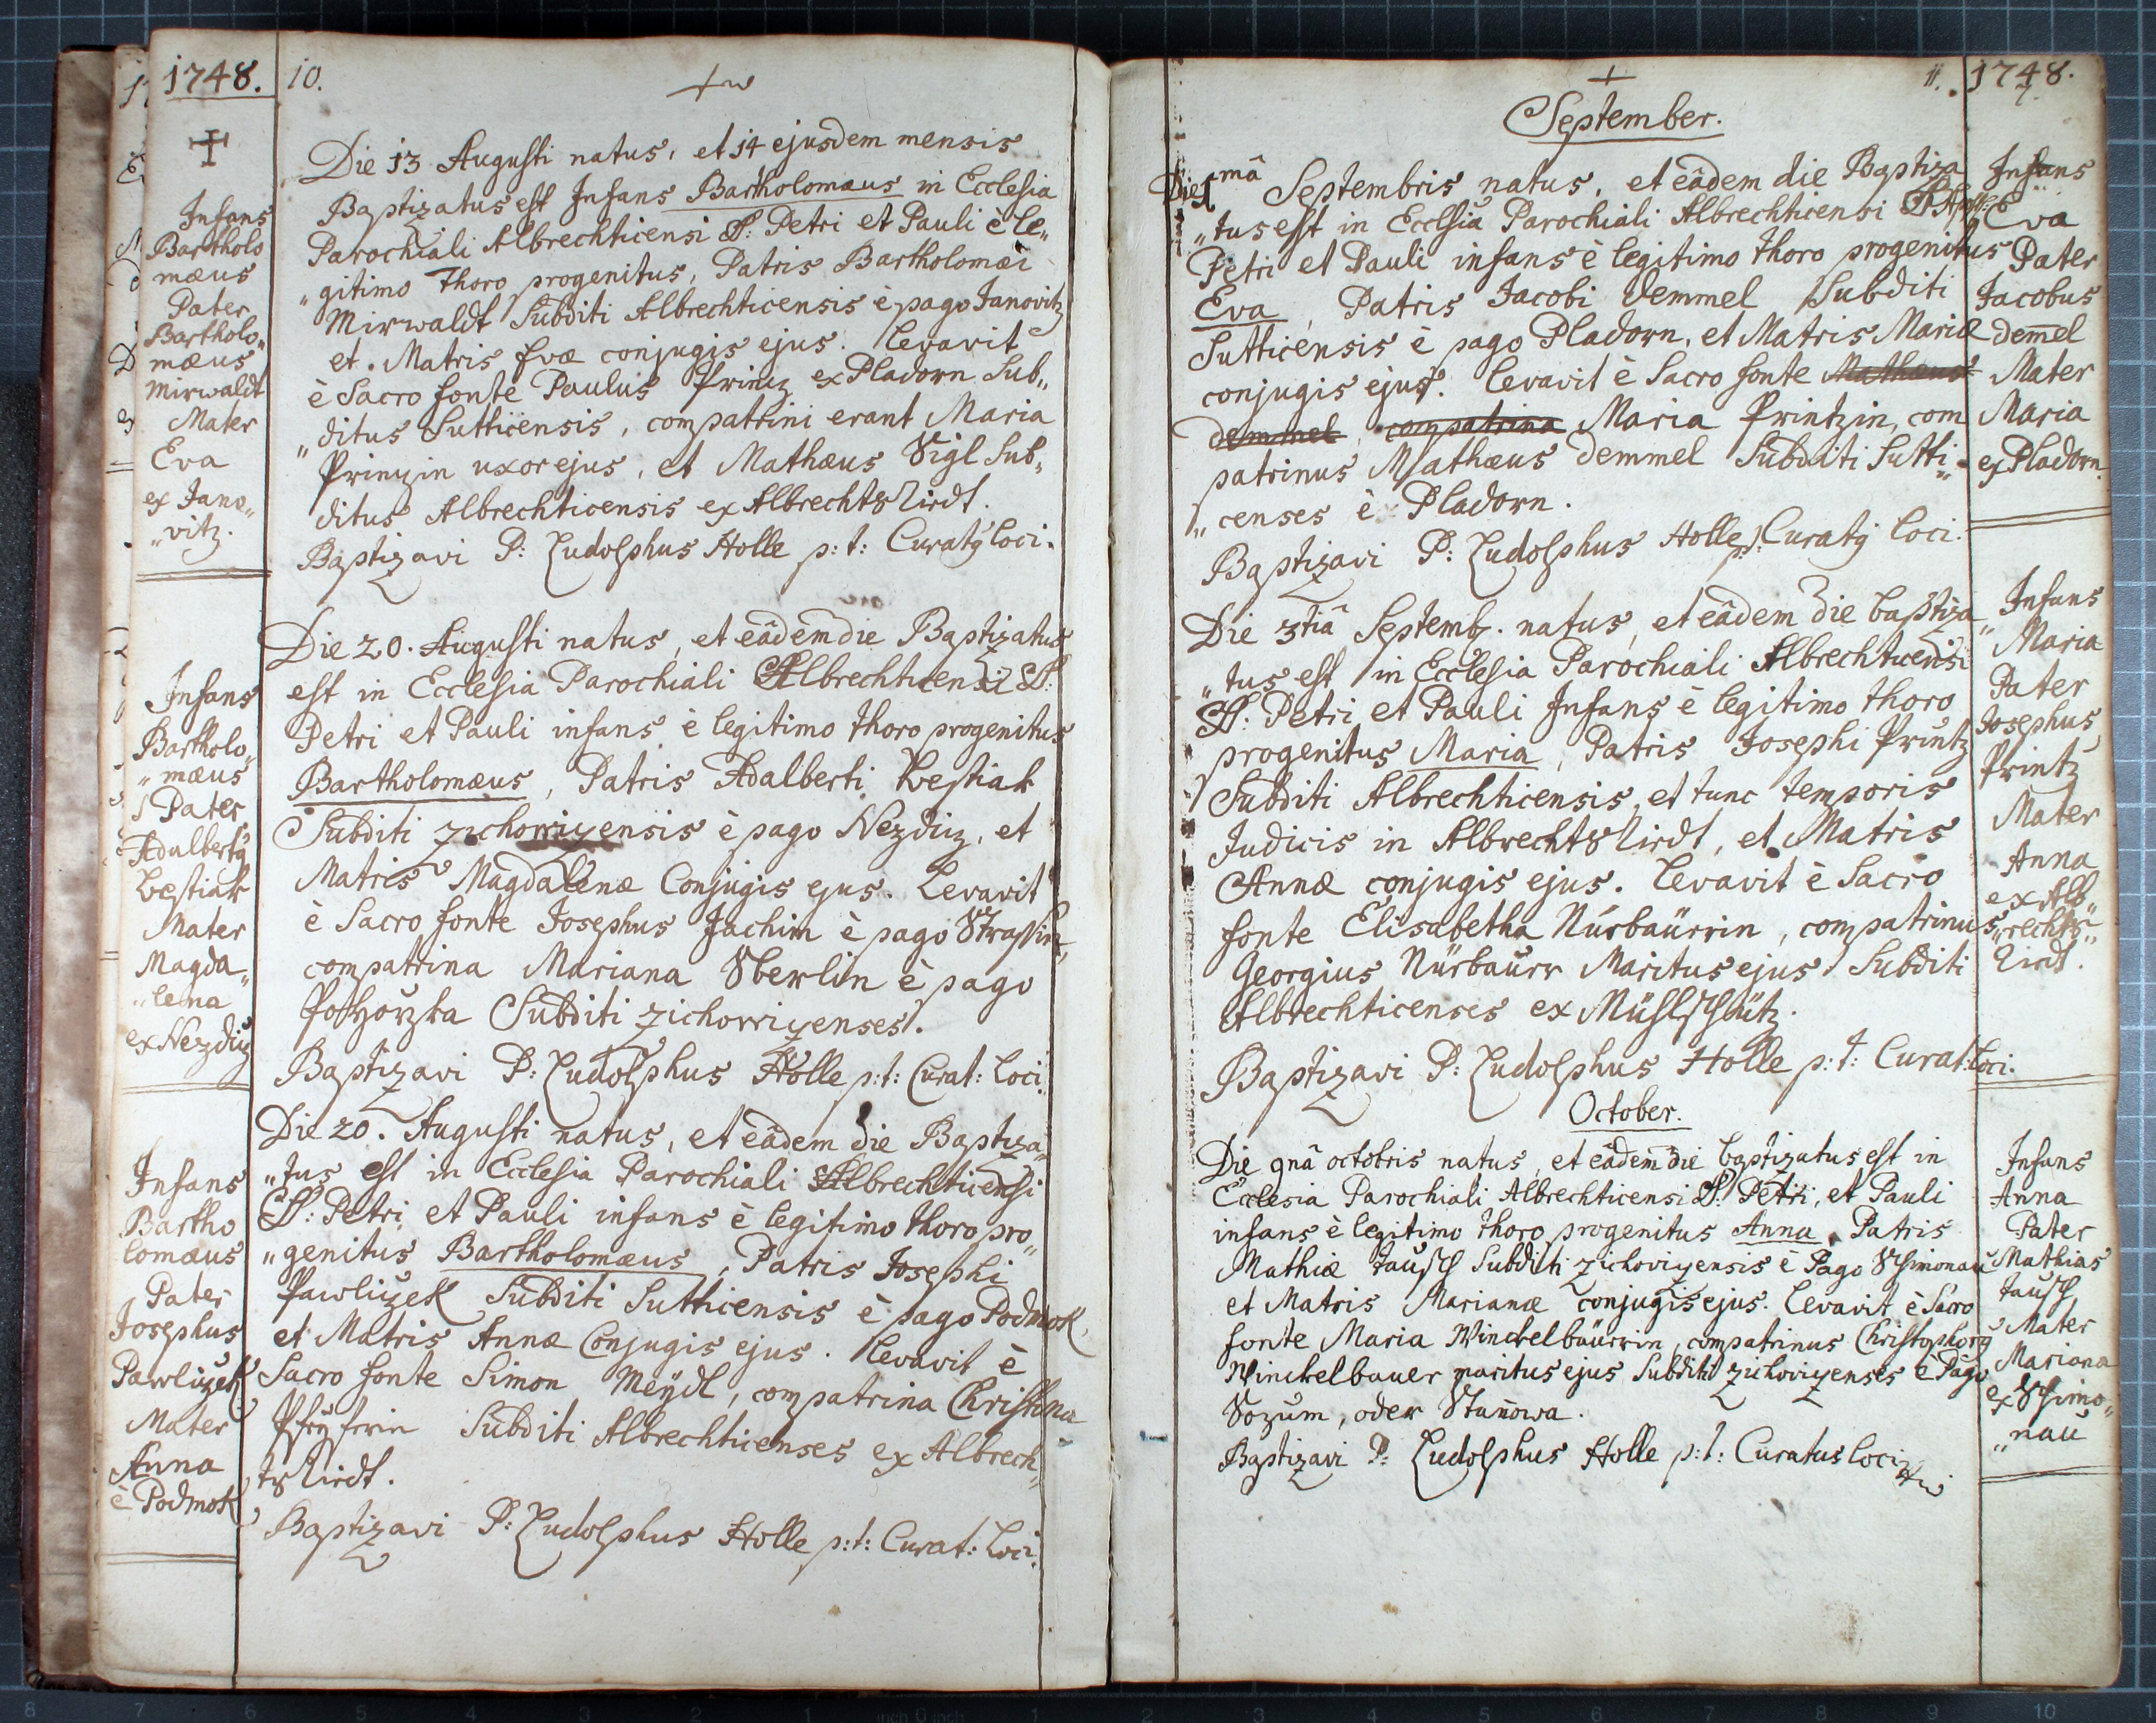 1748.
10.
Infans
Bartholo
mæus
Pater
Bartholo„
mæus
Mirwaldt
Mater
Eva
ex Jano„
„vitz.
Die 13 Augusti natus, et 14 ejusdem mensis
Baptizatus est Infans Bartholomæus in Ecclesia
Parochiali Albrechticensi SS: Petri et Pauli è le„
„gitimo thoro progenitus, Patris Bartholomæi
Mirwaldt Subditi Albrechticensis è pago Janovitz
et Matris Evæ conjugis ejus. Levavit
è Sacro fonte Paulus Printz ex Pladorn Sub„
„ditus Sutticensis, compatrini erant Maria
Printzin uxor ejus, et Mathæus Vigl Sub„
ditus Albrechticensis ex AlbrechtsRirdt.
Baptizavi P: Ludolphus Holle p: t: Curatq Loci.
Infans
Bartholo„
„mæus
Pater
Adalbertq
Westiak
Mater
Magda„
„lena
ex Nezdiz
Die 20. Augusti natus, et eâdem die Baptizatus
est in Ecclesia Parochiali Albrechticensi SS:
Petri et Pauli infans è legitimo thoro progenitus
Bartholomæus, Patris Adalberti Westiak
Subditi zichowizensis è pago Nezdiz, et
Matris Magdalenæ Conjugis ejus. Levavit
è Sacro fonte Josephus Jachim è pago
compatrina Mariana è pago
Subditi zichowizenses.
Baptizavi P: Ludolphus Holle p: t: Curat: Loci.
Infans
Bartho
lomæus
Pater
Josephus
Pawlizek
Mater
Anna
è Podmok
Die 20. Augusti natus, et eâdem die Baptiza„
„tus est in Ecclesia Parochiali Albrechticensi
SS: Petri et Pauli infans è legitimo thoro pro„
„genitus Bartholomæus, Patris Josephi
Pawlizek Subditi Sutticensis è pago Podmok,
et Matris Annæ Conjugis ejus. Levavit è
Sacro fonte Simon Meÿdl, compatrina Christina
Subditi Albrechticenses ex Albrech„
tsRirdt.
Baptizavi P: Ludolphus Holle p: t: Curat: Loci.
11.
1748.
September.
Die 1mâ Septembris natus, et eâdem die Baptiza
„tus est in Ecclesia Parochiali Albrechticensi SS
Petri et Pauli infans è legitimo thoro progenitus
Eva, Patris Jacobi Demmel Subditi
Sutticensis è pago Pladorn, et Matris Mariæ
conjugis ejus. Levavit è Sacro fonte Mathæus
Demmel, compatrina Maria Printzin, com
patrinus Mathæus Demmel Subditi Sutti„
„censes è Pladorn.
Baptizavi P: Ludolphus Holle p: Curatq Loci.
Infans
Eva
Pater
Jacobus
Demel
Mater
Maria
ex Pladorn
Die 3tiâ Septemb. natus, et eâdem die baptiza„
„tus est in Ecclesia Parochiali Albrechticensi
SS: Petri et Pauli Infans è legitimo thoro
progenitus Maria, Patris Josephi Printz
Subditi Albrechticensis, et tunc temporis
Judicis in AlbrechtsRirdt, et Matris
Annæ conjugis ejus. Levavit è Sacro
fonte Elisabetha Núrbaürrin, compatrinus
Georgius Nürbaürr Maritus ejus Subditi
Albrechticenses ex Múhlschütz.
Baptizavi P: Ludolphus Holle p: t: Curat: Loci.
Infans
Maria
Pater
Josephus
Printz
Mater
Anna
ex Alb„
„rechts„
Rirdt.
October.
Die 9nâ octobris natus, et eâdem die baptizatus est in
Ecclesia Parochiali Albrechticensi SS: Petri, et Pauli
infans è legitimo thoro progenitus Anna, Patris
Mathiæ Tausch Subditi zichovizensis è Pago Schimonau
et Matris Marianæ conjugis ejus. Levavit è Sacro
fonte Maria Winckelbäürrin, compatrinus Christophorq
Winckelbauer maritus ejus Subditi zichovizenses è Pago
Vozum, oder Stanowa.
Baptizavi P: Ludolphus Holle p: t: Curatus Loci
Infans
Anna
Pater
Mathias
Tausch
Mater
Mariana
ex Schimo„
„nau